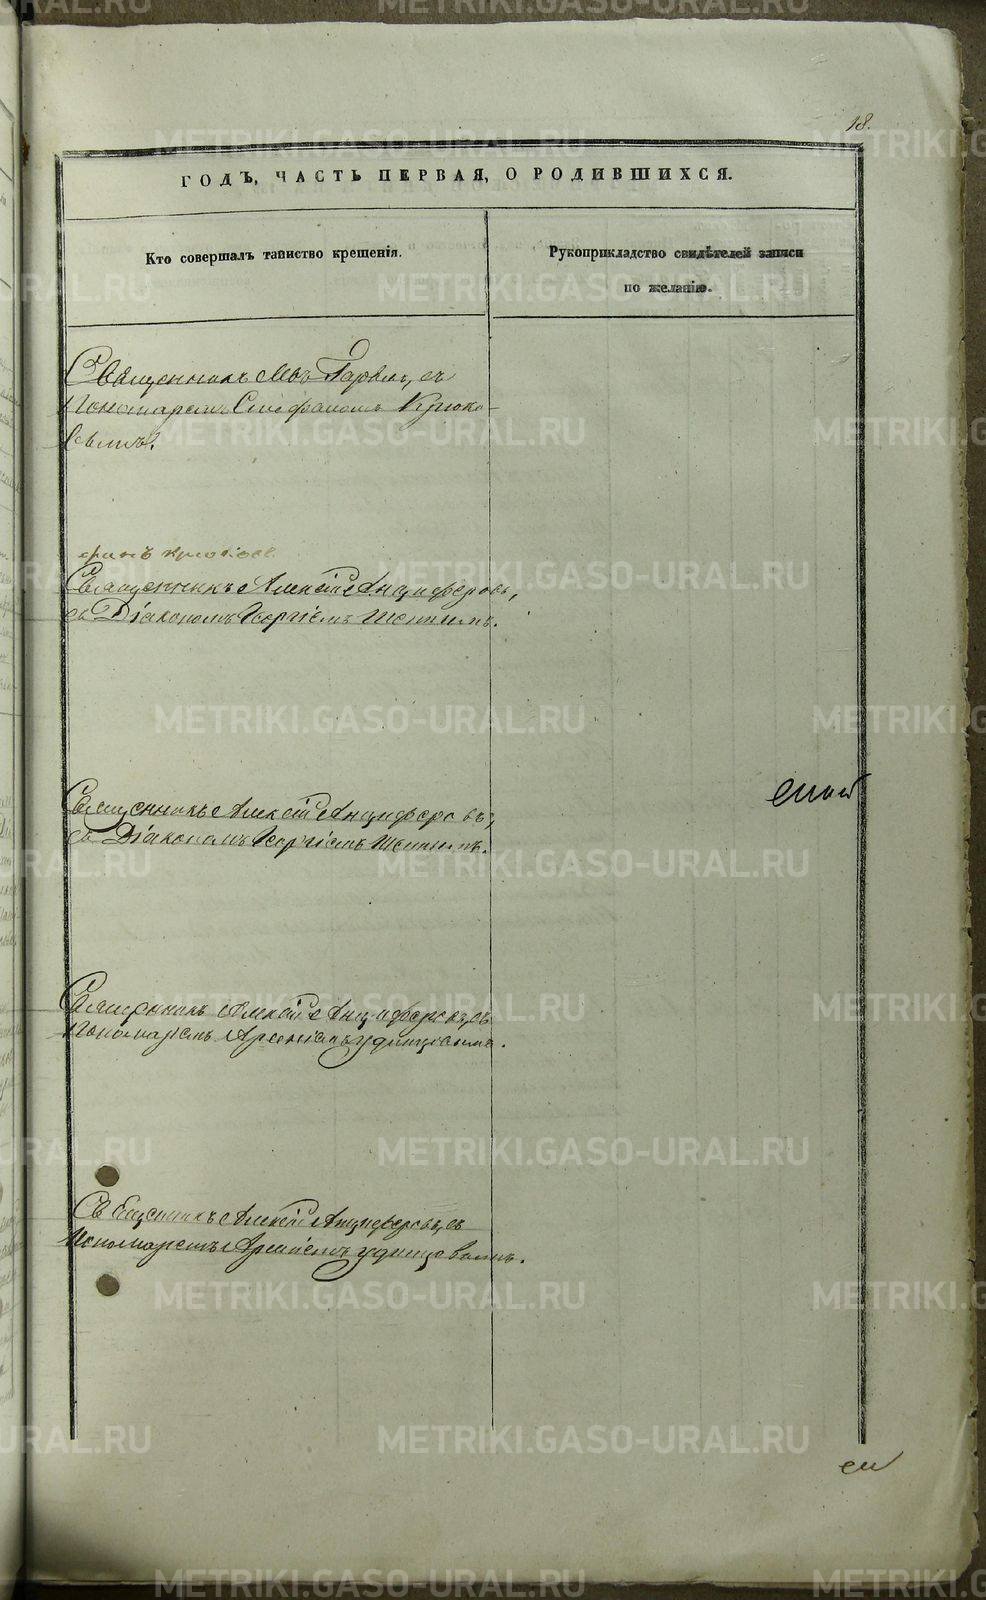 18.
ГОДЪ, ЧАСТЬ ПЕРВАЯ, О РОДИВШИХСЯ.
Кто совершалъ таинство крещенія.
Рукоприкладство свидѣтелей записи
по желанію.
Священникъ Левъ Гаряевъ, съ
Пономаремъ Стефаномъ Крюко-
вымъ.
Священникъ Алексій Анциферовъ,
съ Діакономъ Георгіемъ
Священникъ Алексій Анциферовъ,
съ Діакономъ Георгіемъ
Священникъ Алексій Анциферовъ, съ
Пономаремъ Арсеніемъ Удинцовымъ.
Священникъ Алексій Анциферовъ, съ
Пономаремъ Арсеніемъ Удинцовымъ.
METRIKI.GASO-URAL.RU